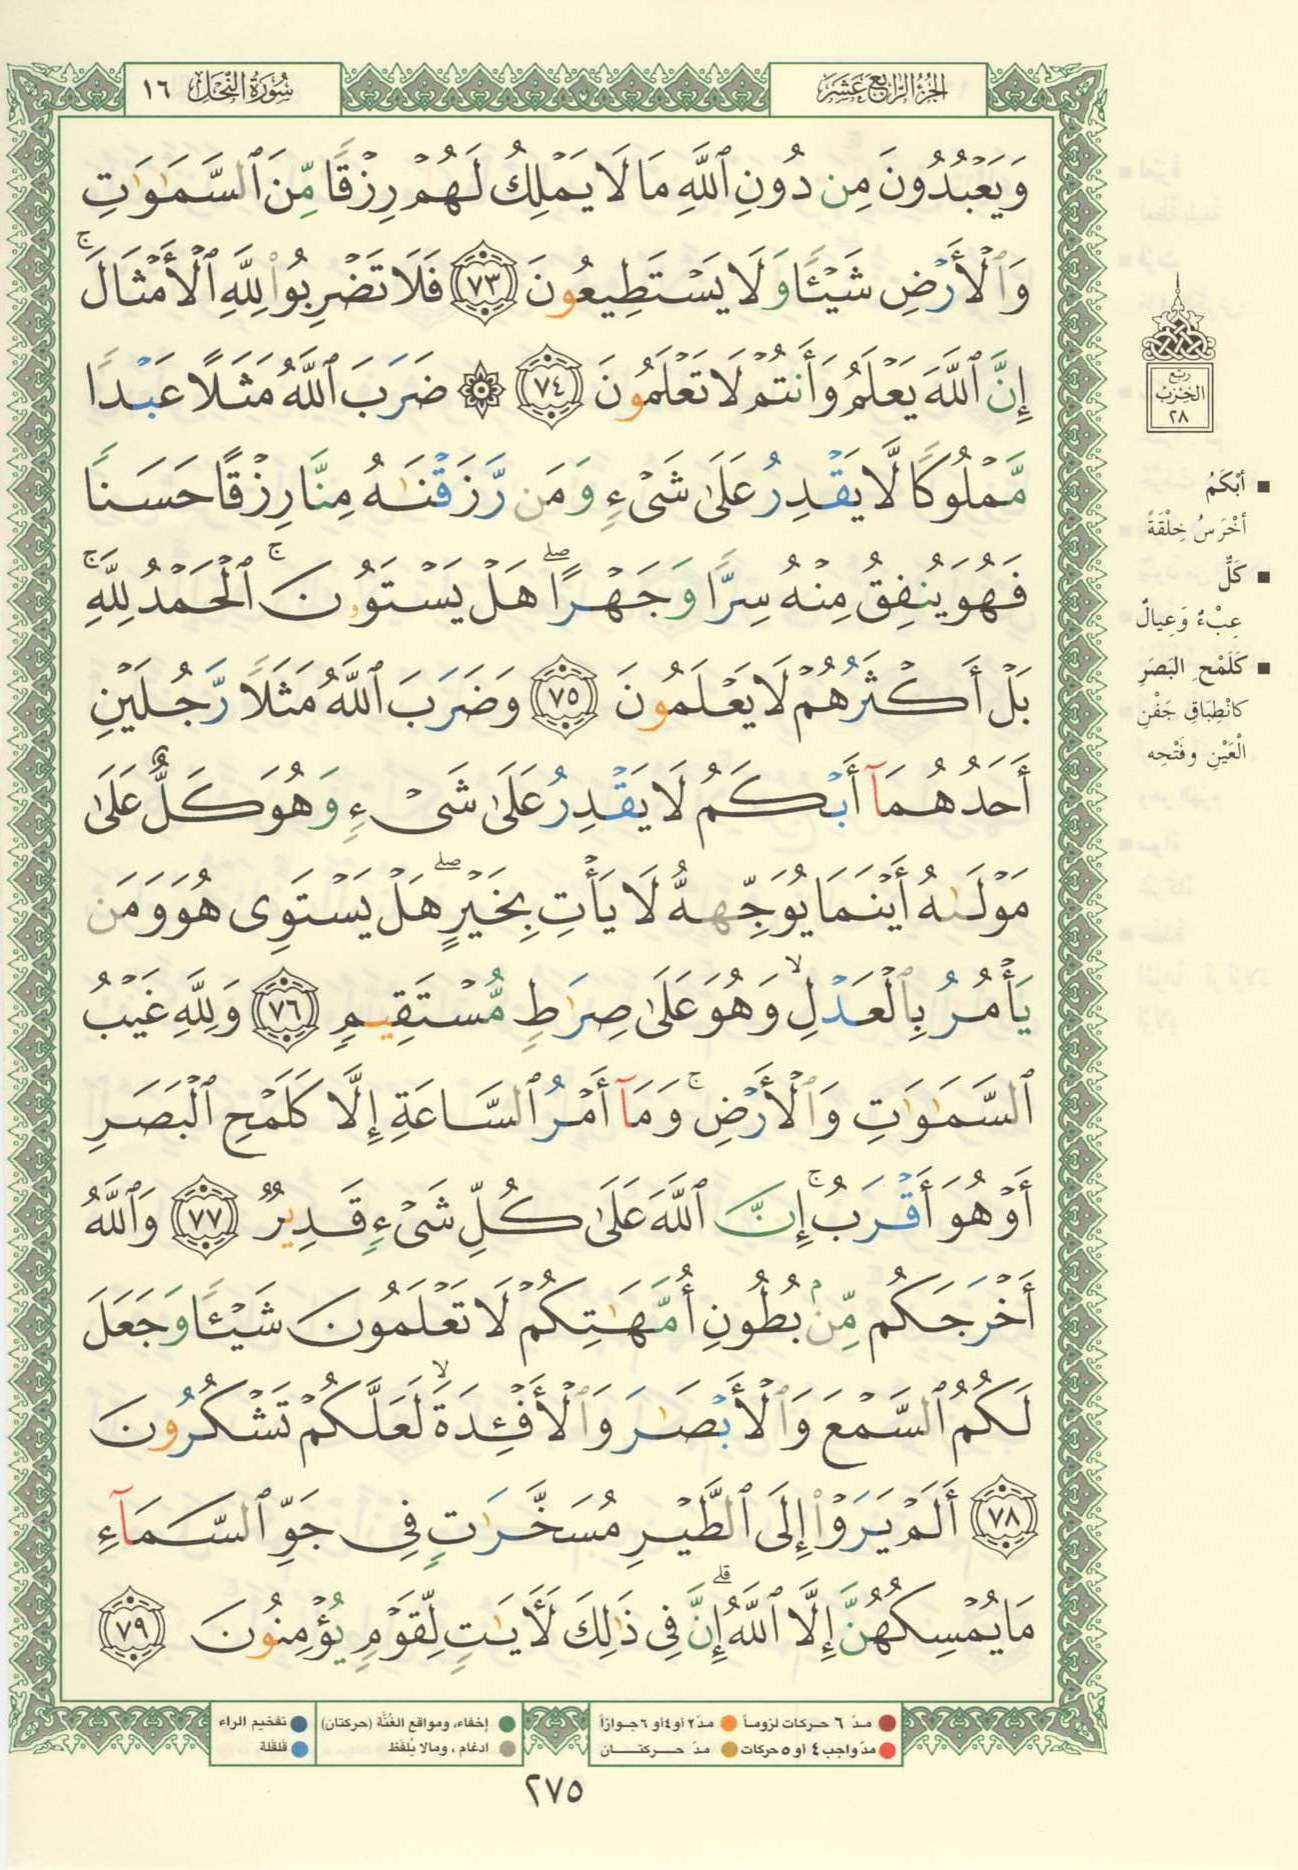 سُورَةُ النَّحْلِ ١٦
الجُزْءُ الرَّابِعَ عَشَرَ
وَيَعْبُدُونَ مِن دُونِ ٱللَّهِ مَا لَا يَمْلِكُ لَهُمْ رِزْقًا مِّنَ ٱلسَّمَٰوَٰتِ
وَٱلْأَرْضِ شَيْـًٔا وَلَا يَسْتَطِيعُونَ ﴿٧٣﴾ فَلَا تَضْرِبُوا۟ لِلَّهِ ٱلْأَمْثَالَ ۚ
إِنَّ ٱللَّهَ يَعْلَمُ وَأَنتُمْ لَا تَعْلَمُونَ ﴿٧٤﴾ ۞ ضَرَبَ ٱللَّهُ مَثَلًا عَبْدًا
مَّمْلُوكًا لَّا يَقْدِرُ عَلَىٰ شَىْءٍ وَمَن رَّزَقْنَٰهُ مِنَّا رِزْقًا حَسَنًا
فَهُوَ يُنفِقُ مِنْهُ سِرًّا وَجَهْرًا ۖ هَلْ يَسْتَوُۥنَ ۚ ٱلْحَمْدُ لِلَّهِ ۚ
بَلْ أَكْثَرُهُمْ لَا يَعْلَمُونَ ﴿٧٥﴾ وَضَرَبَ ٱللَّهُ مَثَلًا رَّجُلَيْنِ
أَحَدُهُمَآ أَبْكَمُ لَا يَقْدِرُ عَلَىٰ شَىْءٍ وَهُوَ كَلٌّ عَلَىٰ
مَوْلَىٰهُ أَيْنَمَا يُوَجِّههُّ لَا يَأْتِ بِخَيْرٍ ۖ هَلْ يَسْتَوِى هُوَ وَمَن
يَأْمُرُ بِٱلْعَدْلِ ۙ وَهُوَ عَلَىٰ صِرَٰطٍ مُّسْتَقِيمٍ ﴿٧٦﴾ وَلِلَّهِ غَيْبُ
ٱلسَّمَٰوَٰتِ وَٱلْأَرْضِ ۚ وَمَآ أَمْرُ ٱلسَّاعَةِ إِلَّا كَلَمْحِ ٱلْبَصَرِ
أَوْ هُوَ أَقْرَبُ ۚ إِنَّ ٱللَّهَ عَلَىٰ كُلِّ شَىْءٍ قَدِيرٌ ﴿٧٧﴾ وَٱللَّهُ
أَخْرَجَكُم مِّنۢ بُطُونِ أُمَّهَٰتِكُمْ لَا تَعْلَمُونَ شَيْـًٔا وَجَعَلَ
لَكُمُ ٱلسَّمْعَ وَٱلْأَبْصَٰرَ وَٱلْأَفْـِٔدَةَ ۙ لَعَلَّكُمْ تَشْكُرُونَ
﴿٧٨﴾ أَلَمْ يَرَوْا۟ إِلَى ٱلطَّيْرِ مُسَخَّرَٰتٍ فِى جَوِّ ٱلسَّمَآءِ
مَا يُمْسِكُهُنَّ إِلَّا ٱللَّهُ ۗ إِنَّ فِى ذَٰلِكَ لَـَٔايَٰتٍ لِّقَوْمٍ يُؤْمِنُونَ ﴿٧٩﴾
رُبع
الحِزْبِ
٢٨
■ أَبْكَمُ
أخْرَسُ خِلْقَةً
■ كَلٌّ
عِبْءٌ وَعِيالٌ
■ كَلَمْحِ البَصَرِ
كانْطِبَاقِ جَفْنِ
الْعَيْنِ وفَتْحِه
مدّ ٦ حركات لزوماً ● مدّ٢ أو٤أو ٦جوازاً
مدّ واجب٤ أو ٥حركات ● مدّ حــركتــان
إخفاء، ومواقع الغُنَّة (حركتان) ● تفخيم الراء
ادغام ، ومالا يُلفَظ ● قلقلة
٢٧٥